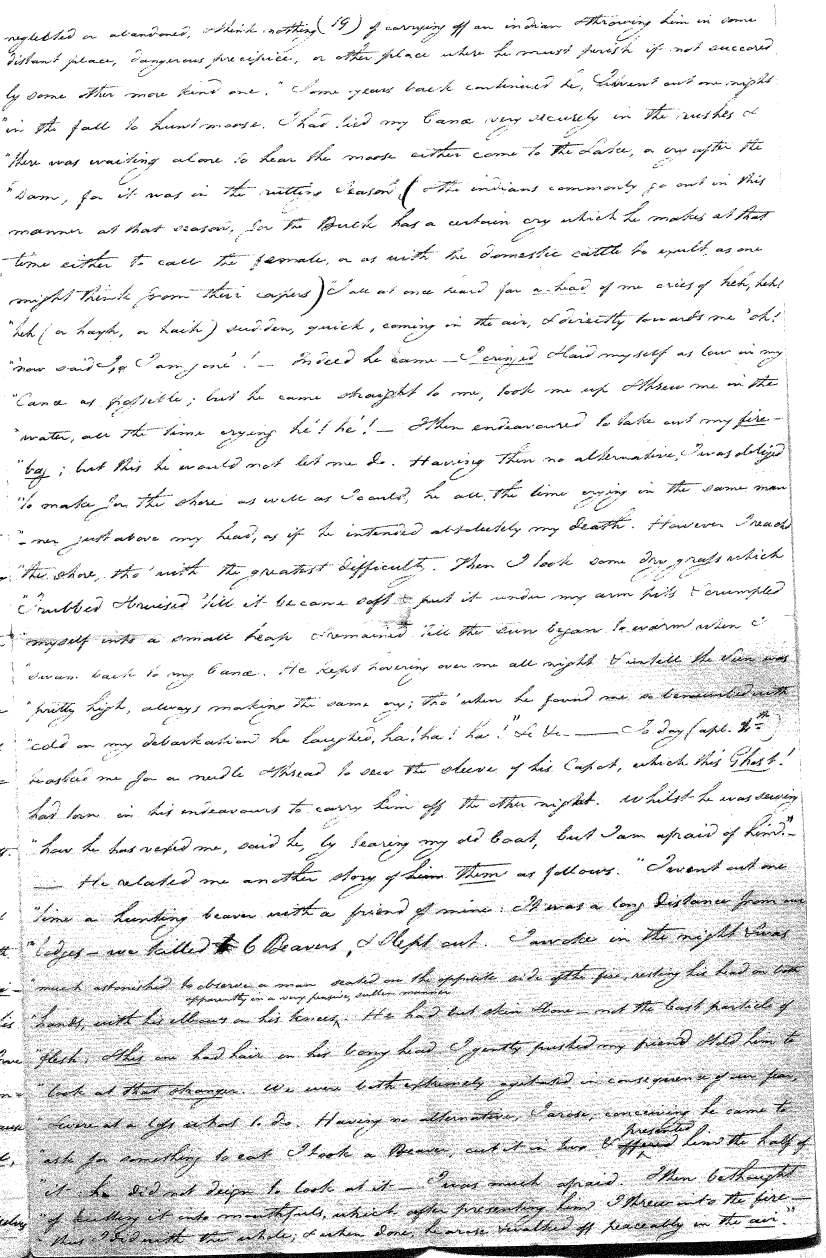 neglected or abandoned, & think nothing (19) of carrying off an indian & throwing him in some
distant place, dangerous precipice, or other place where he must perish if not succored
by some other more kind one." "Some years back continued he, I went out one night
"in the fall to hunt moose. I had tied my Canoe very securely in the rushes &
"there was waiting alone to hear the moose either come to the Lake, or cry after the
"Dam, for it was in the rutting season" (the indians commonly go out in this
manner at that season, for the Buck has a certain cry which he makes at that
time either to call the female, or as with the domestic cattle to exult, as one
might think from their capers) "I all at once heard far a head of me cries of heh, heh!
"heh (or hagh, or haih) sudden, quick, coming in the air, & directly towards me 'oh!
"now said I, I am gone'! — Indeed he came — I cringed & laid myself as low in my
"Canoe as possible; but he came straight to me, took me up & threw me in the
"water, all the time crying he'! he'! — I then endeavoured to take out my fire-
"bag; but this he would not let me do. Having then no alternative, I was obliged
"to make for the shore as well as I could, he all the time crying in the same man
"-ner just above my head, as if he intended absolutely my death. However I reach'd
"the shore, tho' with the greatest difficulty. Then I took some dry grass which
"I rubbed & bruised 'till it became soft & put it under my arm pits & crumpled
"myself into a small heap & remained 'till the sun began to warm when I
"swam back to my Canoe. He kept hovering over me all night & untill the Sun was
"pretty high, always making the same cry; tho' when he found me so benumbed with
"cold on my debarkation he laughed, ha! ha! ha!" &c &c. —— To day (apl. 4th)
he asked me for a needle & thread to sew the sleeve of his Capot, which this Ghost!
had torn in his endeavours to carry him off the other night. Whilst he was sewing
"how he has vexed me, said he, by tearing my old Coat, but I am afraid of him." -
— He related me another story of him them as follows. "I went out one
"time a hunting beaver with a friend of mine: It was a long distance from our
"lodges — we killed 6 Beavers, & slept out. I awoke in the night & was
"much astonished to observe a man seated on the opposite side of the fire, resting his head on both
apparently in a very pensive, sullen manner
"hands, with his elbows on his knees. He had but skin & bone — not the least particle of
"flesh; & this one had hair on his bony head. I gently pushed my friend & told him to
"look at that stranger. We were both extremely agitated in consequence of our fear,
"& were at a loss what to do. Having no alternative, I arose, conceiving he came to
presented
"ask for something to eat I took a Beaver, cut it in two & offered him the half of
"it — he did not deign to look at it — I was much afraid. I then bethought
"of cutting it into mouthfuls, which after presenting him I threw into the fire —
"thus I did with the whole; & when done, he arose & walked off peaceably in the air."